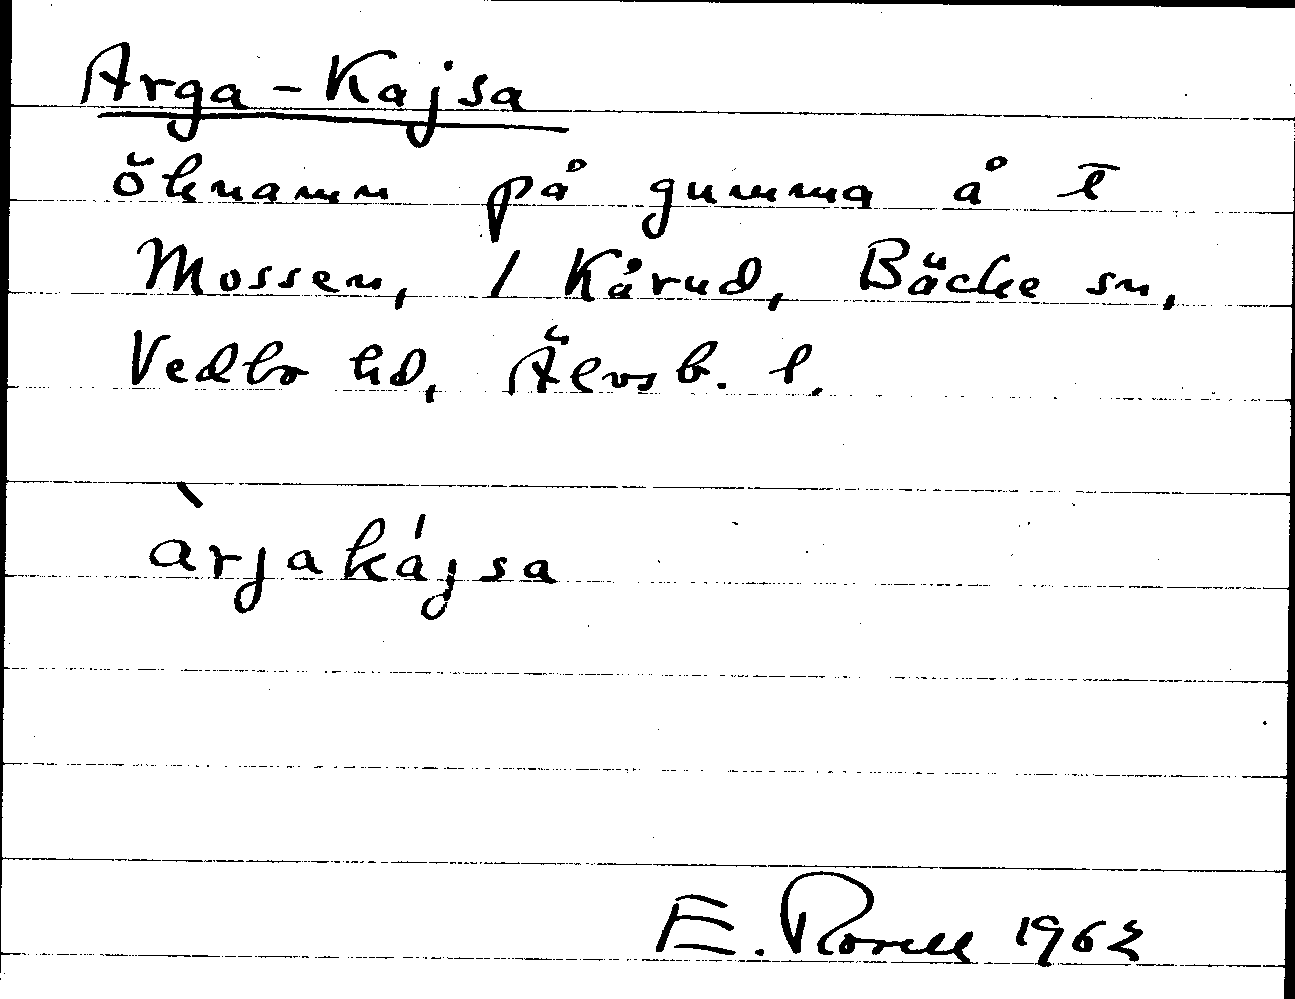 Arga-Kajsa
öknamn på gumma å t̄
Mossen, / Kårud, Bäcke sn,
Vedbo hd, Älvsb. l.
àrjakájsa
E. Rorell 1962